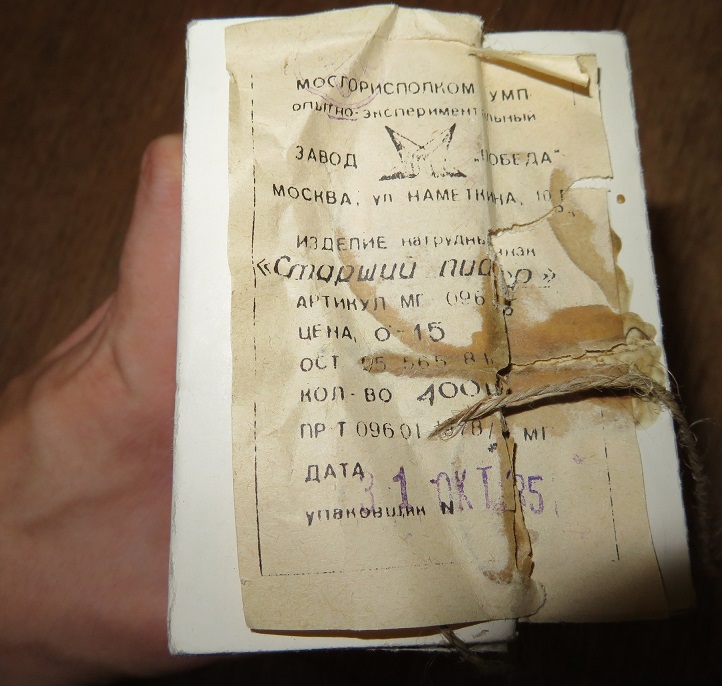 МОСГОРИСПОЛКОМ УМП
опытно-экспериментальный
ЗАВОД „ПОБЕДА“
МОСКВА, ул НАМЕТКИНА, 10
ИЗДЕЛИЕ нагрудный знак
«Старший пионер»
АРТИКУЛ МГ 096
ЦЕНА, 0-15
ОСТ 05 565 81
КОЛ-ВО 400
ПР-Т 09601 МГ
ДАТА
31 ОКТ 85
упаковщик N